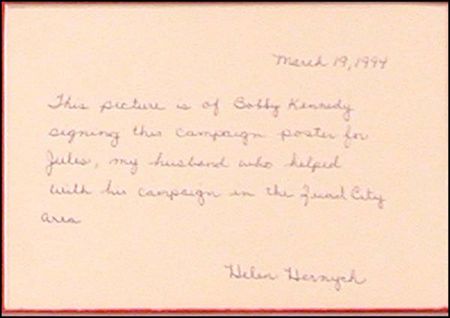 March 19, 1994
This picture is of Bobby Kennedy
signing this campaign poster for
Jules, my husband who helped
with his campaign in the City
area
Helen